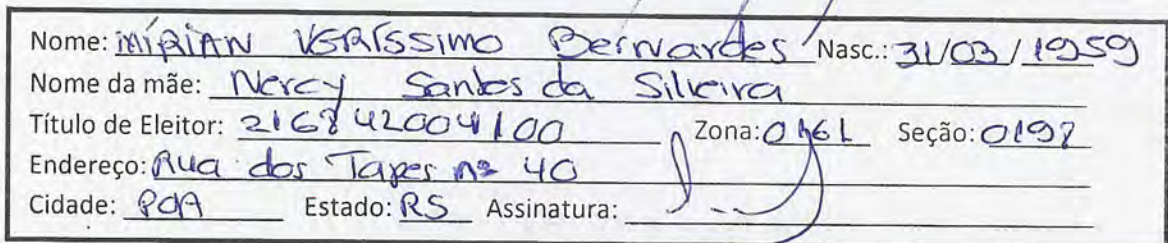 Nome: MÍRIAN VERÍSSIMO Bernardes Nasc.: 31/03/1959
Nome da mãe: Nercy Santos da Silveira
Título de Eleitor: 216842004100 Zona: 0161 Seção: 0197
Endereço: Rua dos Tapes nº 40
Cidade: POA Estado: RS Assinatura: